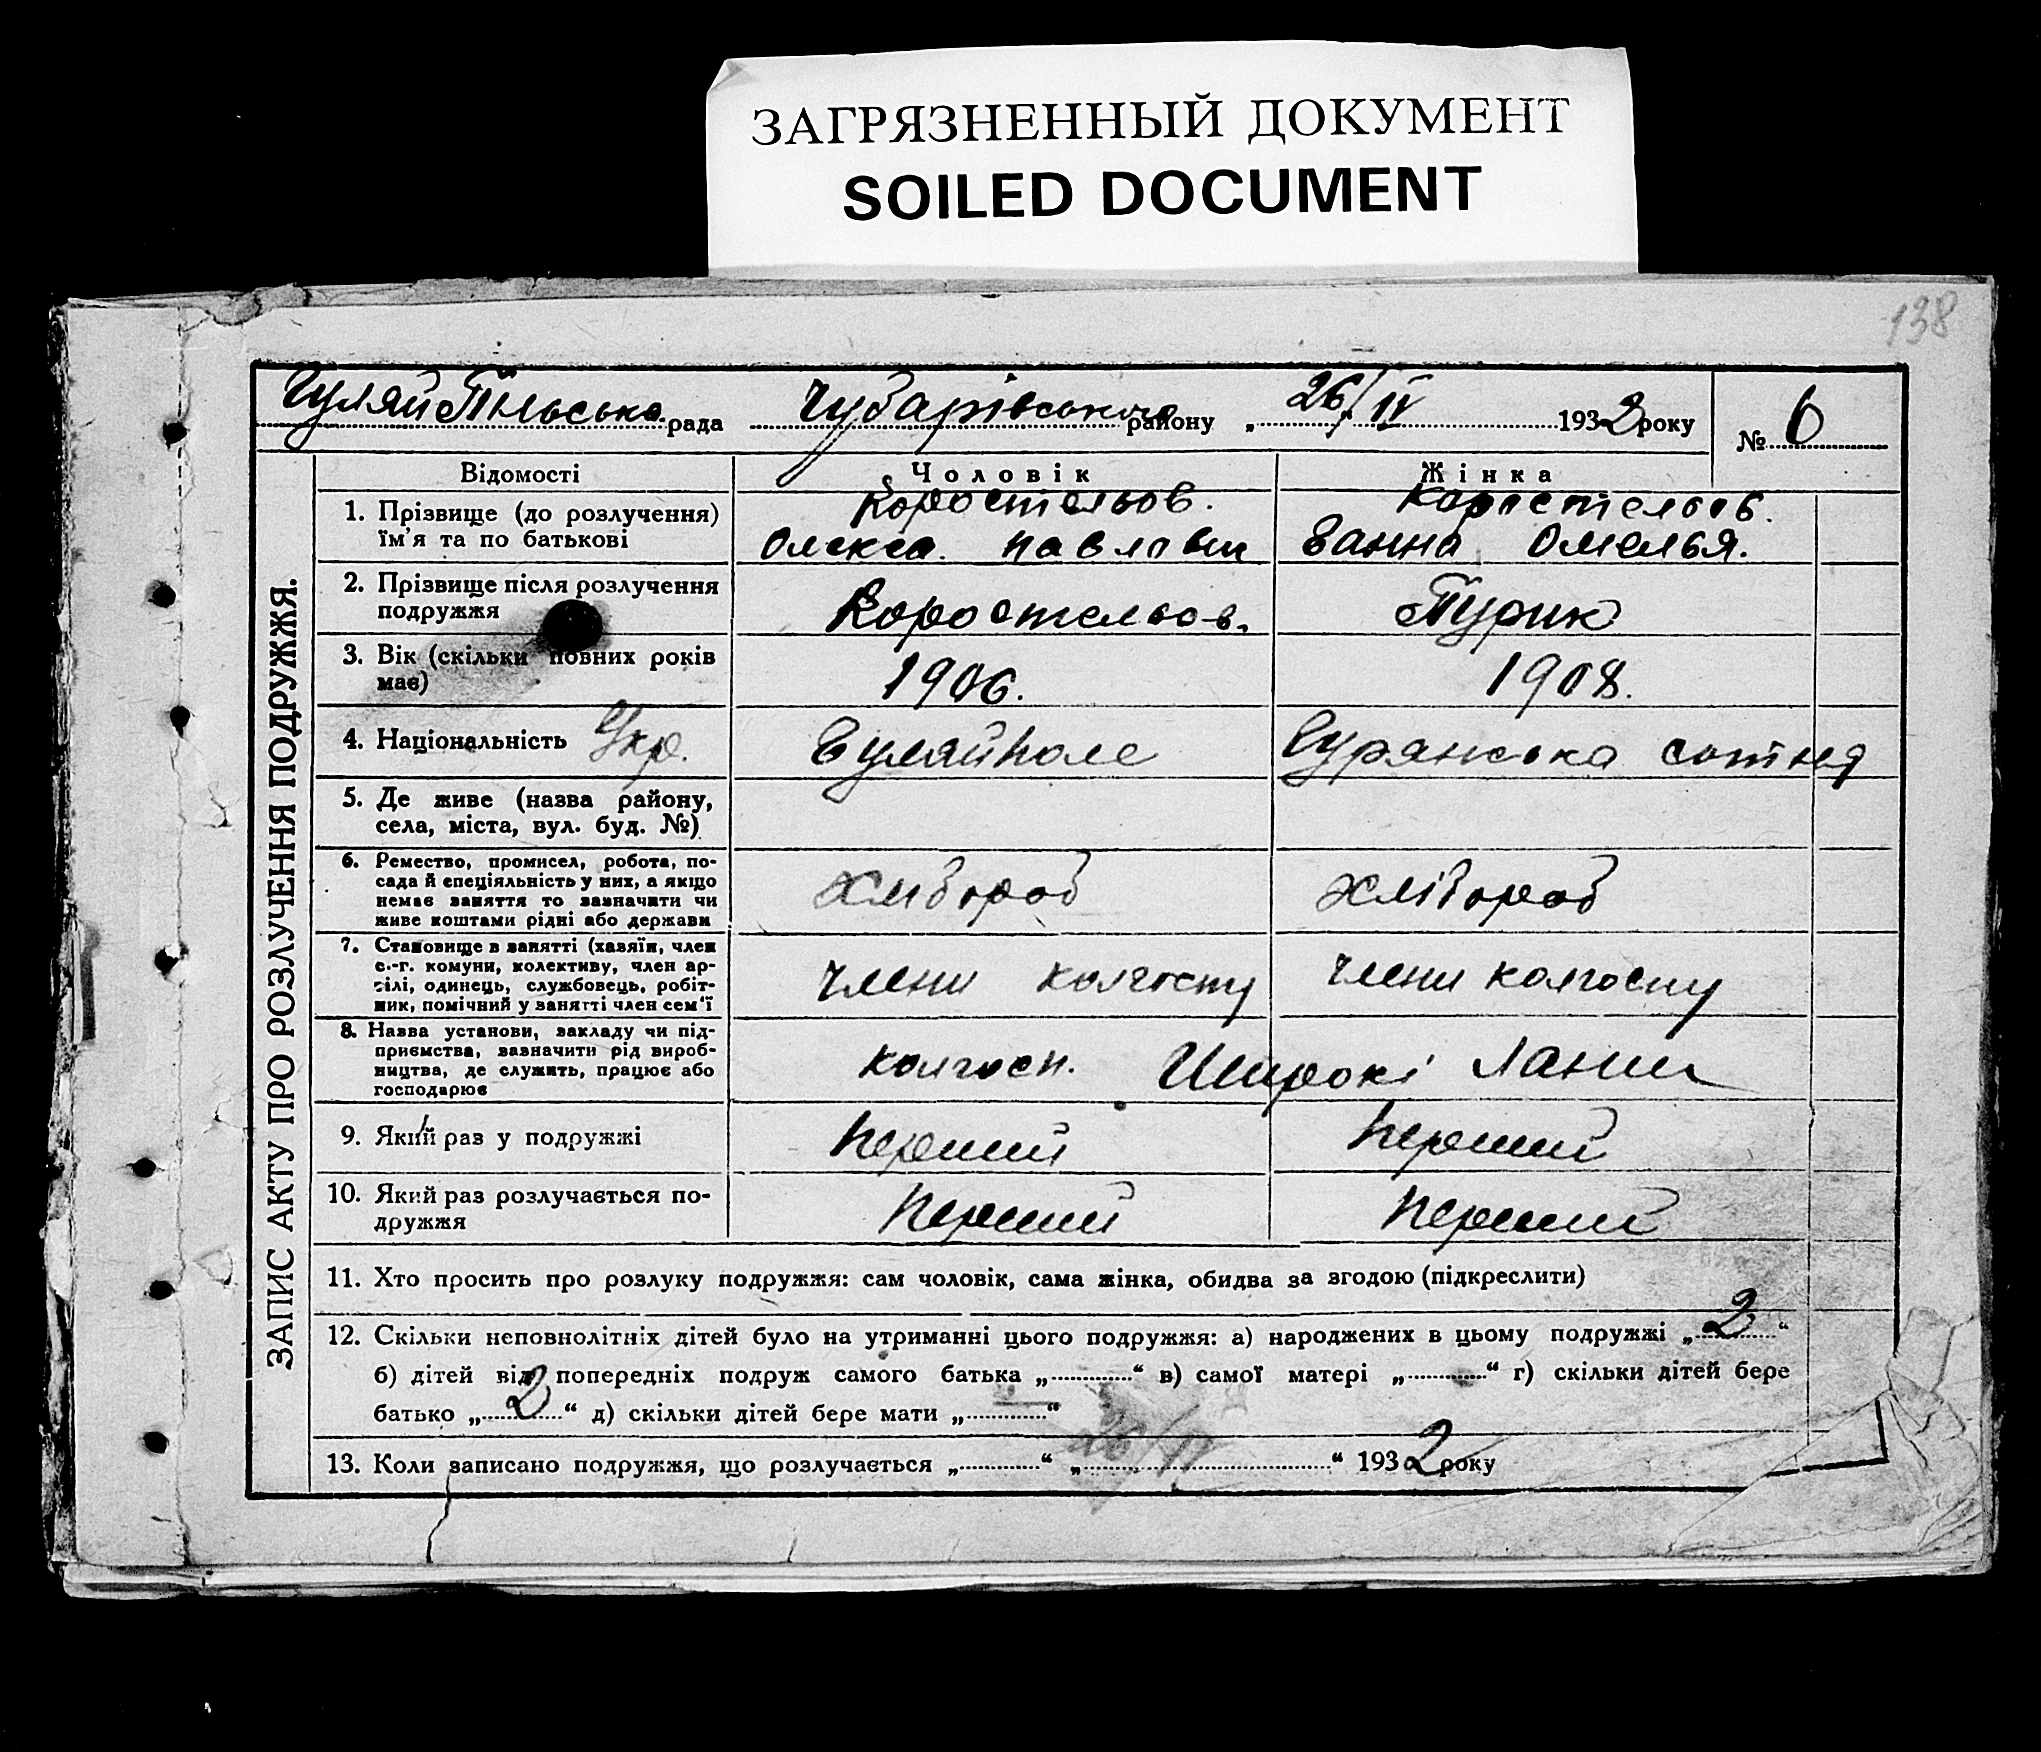 ЗАГРЯЗНЕННЫЙ ДОКУМЕНТ
SOILED DOCUMENT
138
рада Чубарівського району „ 26/IV 1932 року № 6
ЗАПИС АКТУ ПРО РОЗЛУЧЕННЯ ПОДРУЖЖЯ.
Відомості Чоловік Жінка
1. Прізвище (до розлучення) Коростельов. Коростельов.
їм'я та по батькові Олекса Павлович Ганна Омелья.
2. Прізвище після розлучення
подружжя Коростельов. Турик
3. Вік (скільки повних років
має) 1906. 1908.
4. Національність Укр. Гуляйполе сотня
5. Де живе (назва району,
села, міста, вул. буд. №)
6. Ремество, промисел, робота, по-
сада й спеціяльність у них, а якщо
немає заняття то зазначити чи
живе коштами рідні або держави
хлібороб хлібороб
7. Становище в занятті (хазяїн, член
с.-г. комуни, колективу, член ар-
тілі, одинець, службовець, робіт-
ник, помічний у занятті член сем'ї
члени колгоспу члени колгоспу
8. Назва установи, закладу чи під-
приємства, зазначити рід вироб-
ництва, де служить, працює або
господарює
колгосп. Широкі Лани
9. Який раз у подружжі перший перший
10. Який раз розлучається по-
дружжя перший перший
11. Хто просить про розлуку подружжя: сам чоловік, сама жінка, обидва за згодою (підкреслити)
12. Скільки неповнолітніх дітей було на утриманні цього подружжя: а) народжених в цьому подружжі „ 2 “
б) дітей від попередніх подруж самого батька „ “ в) самої матері „ “ г) скільки дітей бере
батько „ 2 “ д) скільки дітей бере мати „ “
13. Коли записано подружжя, що розлучається „ “ „ 26/IV “ 1932 року